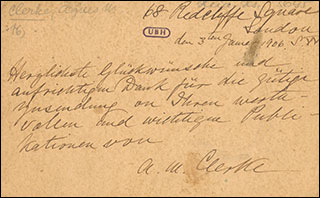 Clerke, Agnes M.
68 Redcliffe Square
London
UBH
den 3ten Januar 1906 S.W.
Herzlichste Glückwünsche und
aufrichtigen Dank für die gütige
Zusendung an Ihren werth-
vollen und wichtigen Publi-
kationen von
A. M. Clerke